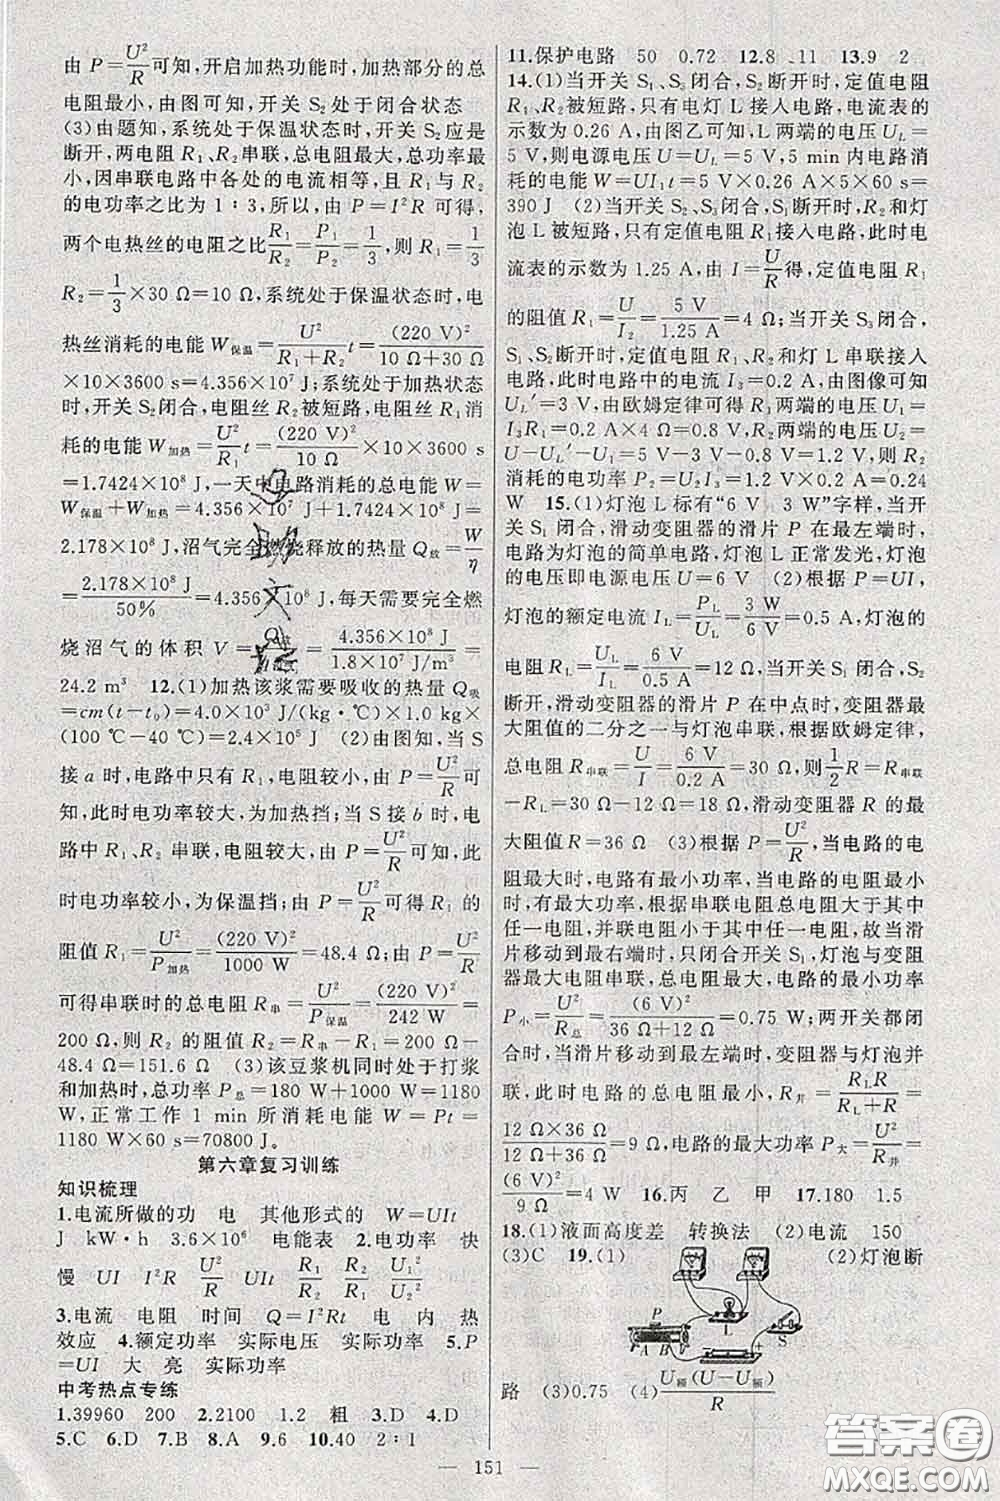 由 P=U²/R 可知,开启加热功能时,加热部分的总
电阻最小,由图可知,开关 S₂ 处于闭合状态
(3)由题知,系统处于保温状态时,开关 S₂ 应是
断开,两电阻 R₁、R₂ 串联,总电阻最大,总功率最
小,因串联电路中各处的电流相等,且 R₁ 与 R₂
的电功率之比为 1∶3,所以,由 P=I²R 可得,
两个电热丝的电阻之比 R₁/R₂=P₁/P₂=1/3,则 R₁=
R₂=1/3×30 Ω=10 Ω,系统处于保温状态时,电
热丝消耗的电能 W保温=U²/(R₁+R₂) t=(220 V)²/(10 Ω+30 Ω)
×10×3600 s=4.356×10⁷ J;系统处于加热状态
时,开关 S₂ 闭合,电阻丝 R₂ 被短路,电阻丝 R₁ 消
耗的电能 W加热=U²/R₁ t=(220 V)²/10 Ω×10×3600 s
=1.7424×10⁸ J,一天中电路消耗的总电能 W=
W保温+W加热=4.356×10⁷ J+1.7424×10⁸ J=
2.178×10⁸ J,沼气完全燃烧释放的热量 Q放=W/η
=2.178×10⁸ J/50%=4.356×10⁸ J,每天需要完全燃
烧沼气的体积 V= =4.356×10⁸ J/1.8×10⁷ J/m³=
24.2 m³ 12.(1)加热该浆需要吸收的热量 Q吸
=cm(t-t₀)=4.0×10³ J/(kg·℃)×1.0 kg×
(100 ℃-40 ℃)=2.4×10⁵ J (2)由图知,当 S
接 a 时,电路中只有 R₁,电阻较小,由 P=U²/R 可
知,此时电功率较大,为加热挡;当 S 接 b 时,电
路中 R₁、R₂ 串联,电阻较大,由 P=U²/R 可知,此
时电功率较小,为保温挡;由 P=U²/R 可得 R₁ 的
阻值 R₁=U²/P加热=(220 V)²/1000 W=48.4 Ω;由 P=U²/R
可得串联时的总电阻 R串=U²/P保温=(220 V)²/242 W=
200 Ω,则 R₂ 的阻值 R₂=R串-R₁=200 Ω-
48.4 Ω=151.6 Ω (3)该豆浆机同时处于打浆
和加热时,总功率 P总=180 W+1000 W=1180
W,正常工作 1 min 所消耗电能 W=Pt=
1180 W×60 s=70800 J。
第六章复习训练
知识梳理
1.电流所做的功 电 其他形式的 W=UIt
J kW·h 3.6×10⁶ 电能表 2.电功率 快
慢 UI I²R U²/R UIt R₁/R₂ R₂/R₁ U₁²/U₂²
3.电流 电阻 时间 Q=I²Rt 电 内 热
效应 4.额定功率 实际电压 实际功率 5.P
=UI 大 亮 实际功率
中考热点专练
1.39960 200 2.2100 1.2 粗 3.D 4.D
5.C 6.D 7.B 8.A 9.6 10.40 2∶1
11.保护电路 50 0.72 12.8 11 13.9 2
14.(1)当开关 S₁、S₂ 闭合,S₃ 断开时,定值电阻
R₁、R₂ 被短路,只有电灯 L 接入电路,电流表的
示数为 0.26 A,由图乙可知,L 两端的电压 U_L=
5 V,则电源电压 U=U_L=5 V,5 min 内电路消
耗的电能 W=UI₁t=5 V×0.26 A×5×60 s=
390 J (2)当开关 S₂、S₃ 闭合,S₁ 断开时,R₂ 和灯
泡 L 被短路,只有定值电阻 R₁ 接入电路,此时电
流表的示数为 1.25 A,由 I=U/R 得,定值电阻 R₁
的阻值 R₁=U/I₂=5 V/1.25 A=4 Ω;当开关 S₃ 闭合,
S₁、S₂ 断开时,定值电阻 R₁、R₂ 和灯 L 串联接入
电路,此时电路中的电流 I₃=0.2 A,由图像可知
U_L′=3 V,由欧姆定律可得 R₁ 两端的电压 U₁=
I₃R₁=0.2 A×4 Ω=0.8 V,R₂ 两端的电压 U₂=
U-U_L′-U₁=5 V-3 V-0.8 V=1.2 V,则 R₂
消耗的电功率 P₂=U₂I₃=1.2 V×0.2 A=0.24
W 15.(1)灯泡 L 标有“6 V 3 W”字样,当开
关 S₁ 闭合,滑动变阻器的滑片 P 在最左端时,
电路为灯泡的简单电路,灯泡 L 正常发光,灯泡
的电压即电源电压 U=6 V (2)根据 P=UI,
灯泡的额定电流 I_L=P_L/U_L=3 W/6 V=0.5 A,灯泡的
电阻 R_L=U_L/I_L=6 V/0.5 A=12 Ω,当开关 S₁ 闭合,S₂
断开,滑动变阻器的滑片 P 在中点时,变阻器最
大阻值的二分之一与灯泡串联,根据欧姆定律,
总电阻 R串联=U/I=6 V/0.2 A=30 Ω,则 1/2 R=R串联
-R_L=30 Ω-12 Ω=18 Ω,滑动变阻器 R 的最
大阻值 R=36 Ω (3)根据 P=U²/R,当电路的电
阻最大时,电路有最小功率,当电路的电阻最小时
有最大功率,根据串联电路总电阻大于其中
任一电阻,并联电阻小于其中任一电阻,故当滑
片移动到最右端时,只闭合开关 S₁,灯泡与变阻
器最大电阻串联,总电阻最大,电路的最小功率
P小=U²/R总=(6 V)²/(36 Ω+12 Ω)=0.75 W;两开关都闭
合时,当滑片移动到最左端时,变阻器与灯泡并
联,此时电路的总电阻最小,R并=R_LR/(R_L+R)=
12 Ω×36 Ω/(12 Ω+36 Ω)=9 Ω,电路的最大功率 P大=U²/R并=
(6 V)²/9 Ω=4 W 16.丙 乙 甲 17.180 1.5
18.(1)液面高度差 转换法 (2)电流 150
(3)C 19.(1) (2)灯泡断
P
A B L S
路 (3)0.75 (4)U额(U-U额)/R
151
答案圈
MXQE.COM